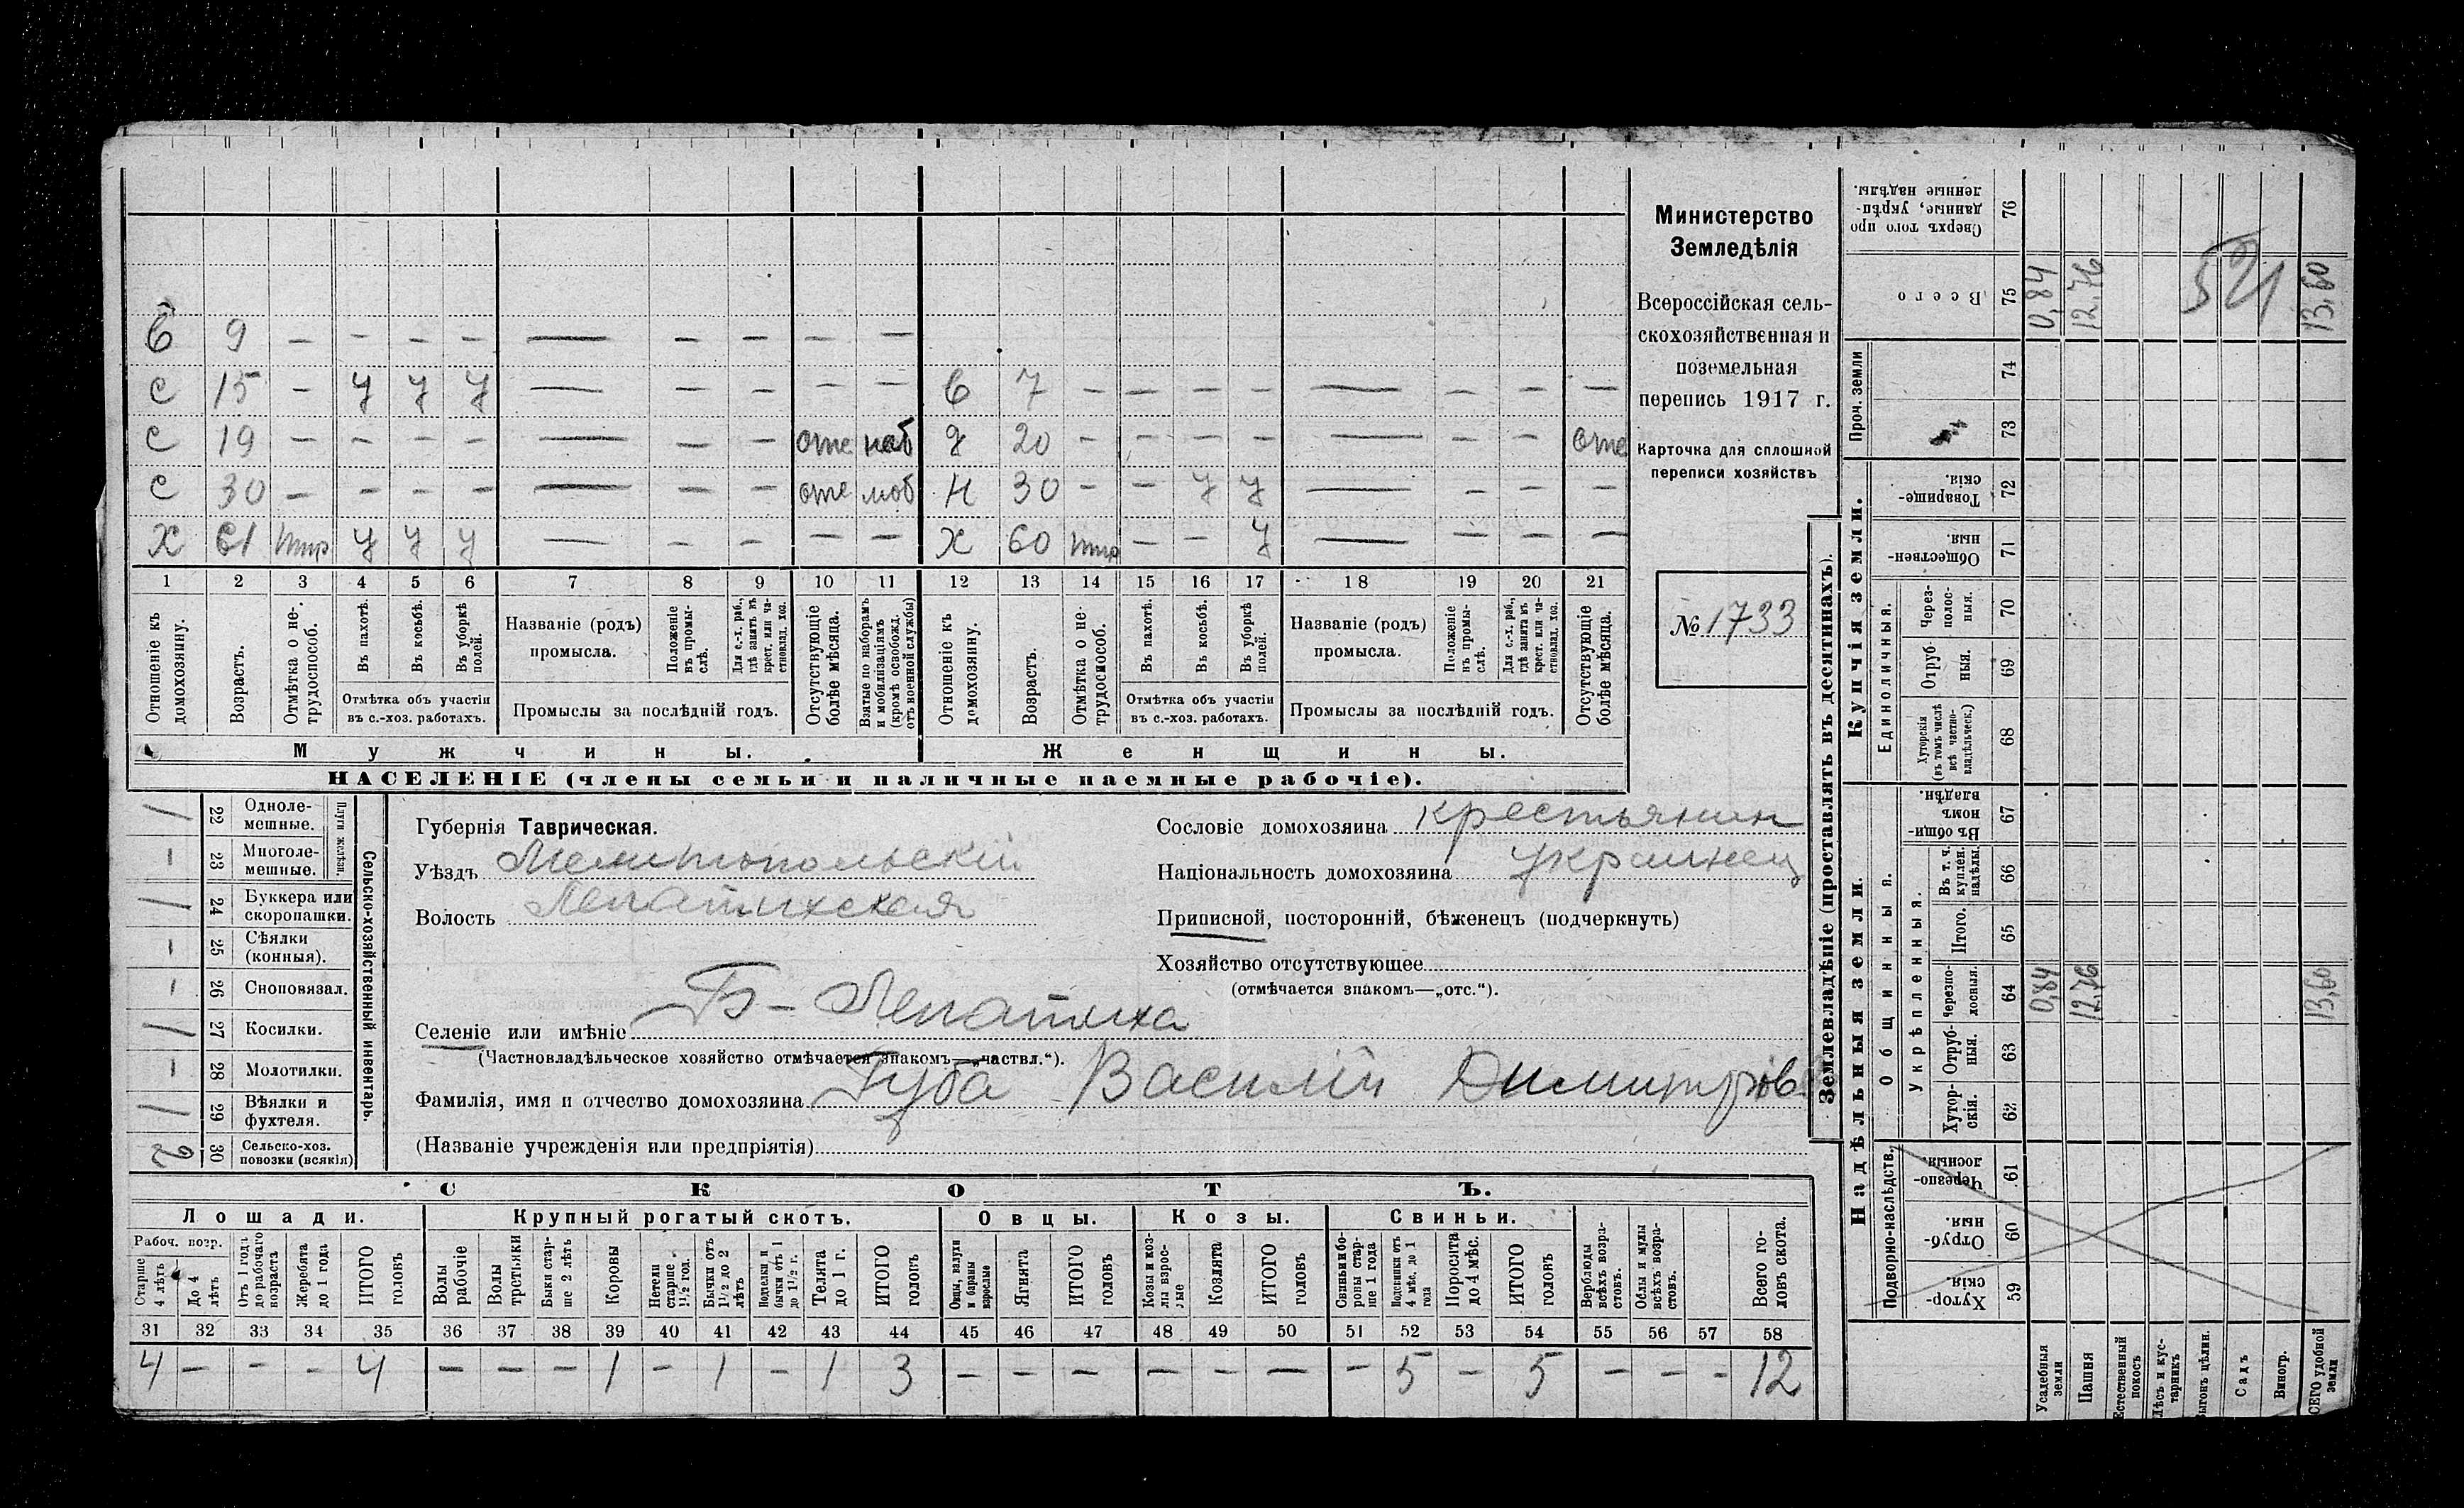 Министерство
Земледѣлія
Всероссійская сель-
скохозяйственная и
поземельная
перепись 1917 г.
Карточка для сплошной
переписи хозяйствъ
№ 1733
б 9 — — — — — — — — —
с 15 — у у у — — — — — б 7 — — — — — — — —
с 19 — — — — — — — отс наб д 20 — — — — — — — отс
с 30 — — — — — — — отс моб н 30 — — у у — — — —
х 61 — у у у — — — — — х 60 — — у — — — —
1 2 3 4 5 6 7 8 9 10 11 12 13 14 15 16 17 18 19 20 21
Отношеніе къ домохозяину.
Возрастъ.
Отмѣтка о не-трудоспособ.
Въ пахотѣ.
Въ косьбѣ.
Въ уборкѣ полей.
Отмѣтка объ участіи въ с.-хоз. работахъ.
Названіе (родъ) промысла.
Положеніе въ промы-слѣ.
Для с.-х. раб., гдѣ занятъ въ крест. или ча-стновлад. хоз.
Промыслы за послѣдній годъ.
Отсутствующіе болѣе мѣсяца.
Взятые по наборамъ и мобилизаціямъ (кромѣ освобожд. отъ военной службы)
Отношеніе къ домохозяину.
Возрастъ.
Отмѣтка о не-трудоспособ.
Въ пахотѣ.
Въ косьбѣ.
Въ уборкѣ полей.
Отмѣтка объ участіи въ с.-хоз. работахъ.
Названіе (родъ) промысла.
Положеніе въ промы-слѣ.
Для с.-х. раб., гдѣ занятъ въ крест. или ча-стновлад. хоз.
Промыслы за послѣдній годъ.
Отсутствующіе болѣе мѣсяца.
Мужчины. Женщины.
НАСЕЛЕНІЕ (члены семьи и наличные наемные рабочіе).
Сельско-хозяйственный инвентарь.
Плуги желѣзн.
1 22 Одноле-мешные.
— 23 Многоле-мешные.
1 24 Буккера или скоропашки.
— 25 Сѣялки (конныя).
— 26 Сноповязал.
1 27 Косилки.
— 28 Молотилки.
1 29 Вѣялки и фухтеля.
2 30 Сельско-хоз. повозки (всякія)
Губернія Таврическая.
Уѣздъ Мелитопольскій
Волость Лепатихская
Сословіе домохозяина крестьянин
Національность домохозяина украинец
Приписной, посторонній, бѣженецъ (подчеркнуть)
Хозяйство отсутствующее
(отмѣчается знакомъ—„отс.“).
Селеніе или имѣніе Б-Лепатиха
(Частновладѣльческое хозяйство отмѣчается знакомъ—„частвл.“).
Фамилія, имя и отчество домохозяина Губа Василій Димитріов
(Названіе учрежденія или предпріятія)
СКОТЪ.
Лошади. Крупный рогатый скотъ. Овцы. Козы. Свиньи.
Рабоч. возр.
Старше 4 лѣтъ
До 4 лѣтъ
Отъ 1 года до рабочаго возраста
Жеребята до 1 года
ИТОГО головъ
Волы рабочіе
Волы третьяки
Быки стар-ше 2 лѣтъ
Коровы
Нетели старше 1½ год.
Бычки отъ 1½ до 2 лѣтъ
Подтелки и бычки отъ 1 до 1½ г.
Телята до 1 г.
ИТОГО головъ
Овцы, валухи и бараны взрослые
Ягнята
ИТОГО головъ
Козы и коз-лы взрос-лые
Козлята
ИТОГО головъ
Свиньи и бо-ровы стар-ше 1 года
Подсвинки отъ 4 мѣс. до 1 года
Поросята до 4 мѣс.
ИТОГО головъ
Верблюды всѣхъ возра-стовъ.
Ослы и мулы всѣхъ возра-стовъ.
Всего го-ловъ скота.
31 32 33 34 35 36 37 38 39 40 41 42 43 44 45 46 47 48 49 50 51 52 53 54 55 56 57 58
4 — — — 4 — — — 1 — 1 — 1 3 — — — — — — — 5 — 5 — — — 12
Землевладѣніе (проставлять въ десятинахъ).
Надѣльныя земли. Купчія земли. Проч. земли
Подворно-наслѣдств.
Общинныя.
Укрѣпленныя.
Единоличныя.
Сверхъ того про данные, укрѣп-ленные надѣлы. 76
Всего 75 0,84 12,76 13,60
521
74
73
Товарище-скія. 72
Обществен-ныя. 71
Через-полос-ныя. 70
Отруб-ныя. 69
Хуторскія (въ томъ числѣ всѣ частно-владѣльческ.) 68
Въ общи-номъ владѣн. 67
Въ т. ч. куплен. надѣлы 66
Итого. 65
Черезпо-лосныя. 64 0,84 12,76 13,60
Отруб-ныя. 63
Хутор-скія. 62
Черезпо-лосныя. 61
Отруб-ныя. 60
Хутор-скія. 59
Усадебныя земли
Пашня
Естественный покосъ
Лѣсъ и кус-тарникъ
Выгонъ цѣлин.
Садъ
Виногр.
ВСЕГО удобной земли